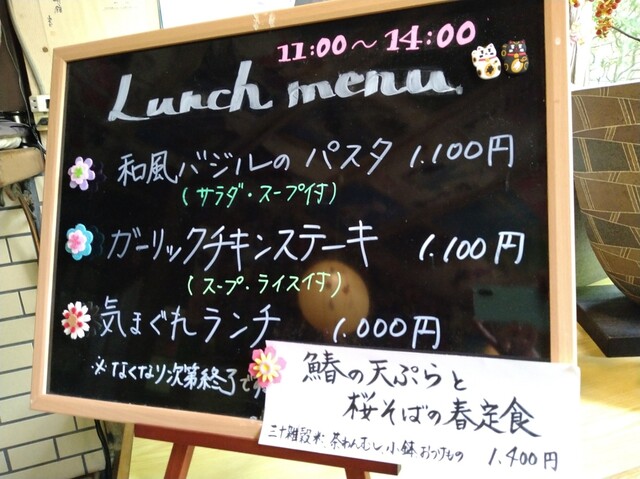 11:00～14:00
Lunch menu
和風バジルのパスタ 1.100円
(サラダ・スープ付)
ガーリックチキンステーキ 1.100円
(スープ・ライス付)
気まぐれランチ 1.000円
※なくなり次第終了です
鰆の天ぷらと
桜そばの春定食
三十雑穀米、茶わんむし、小鉢、おつけもの 1.400円